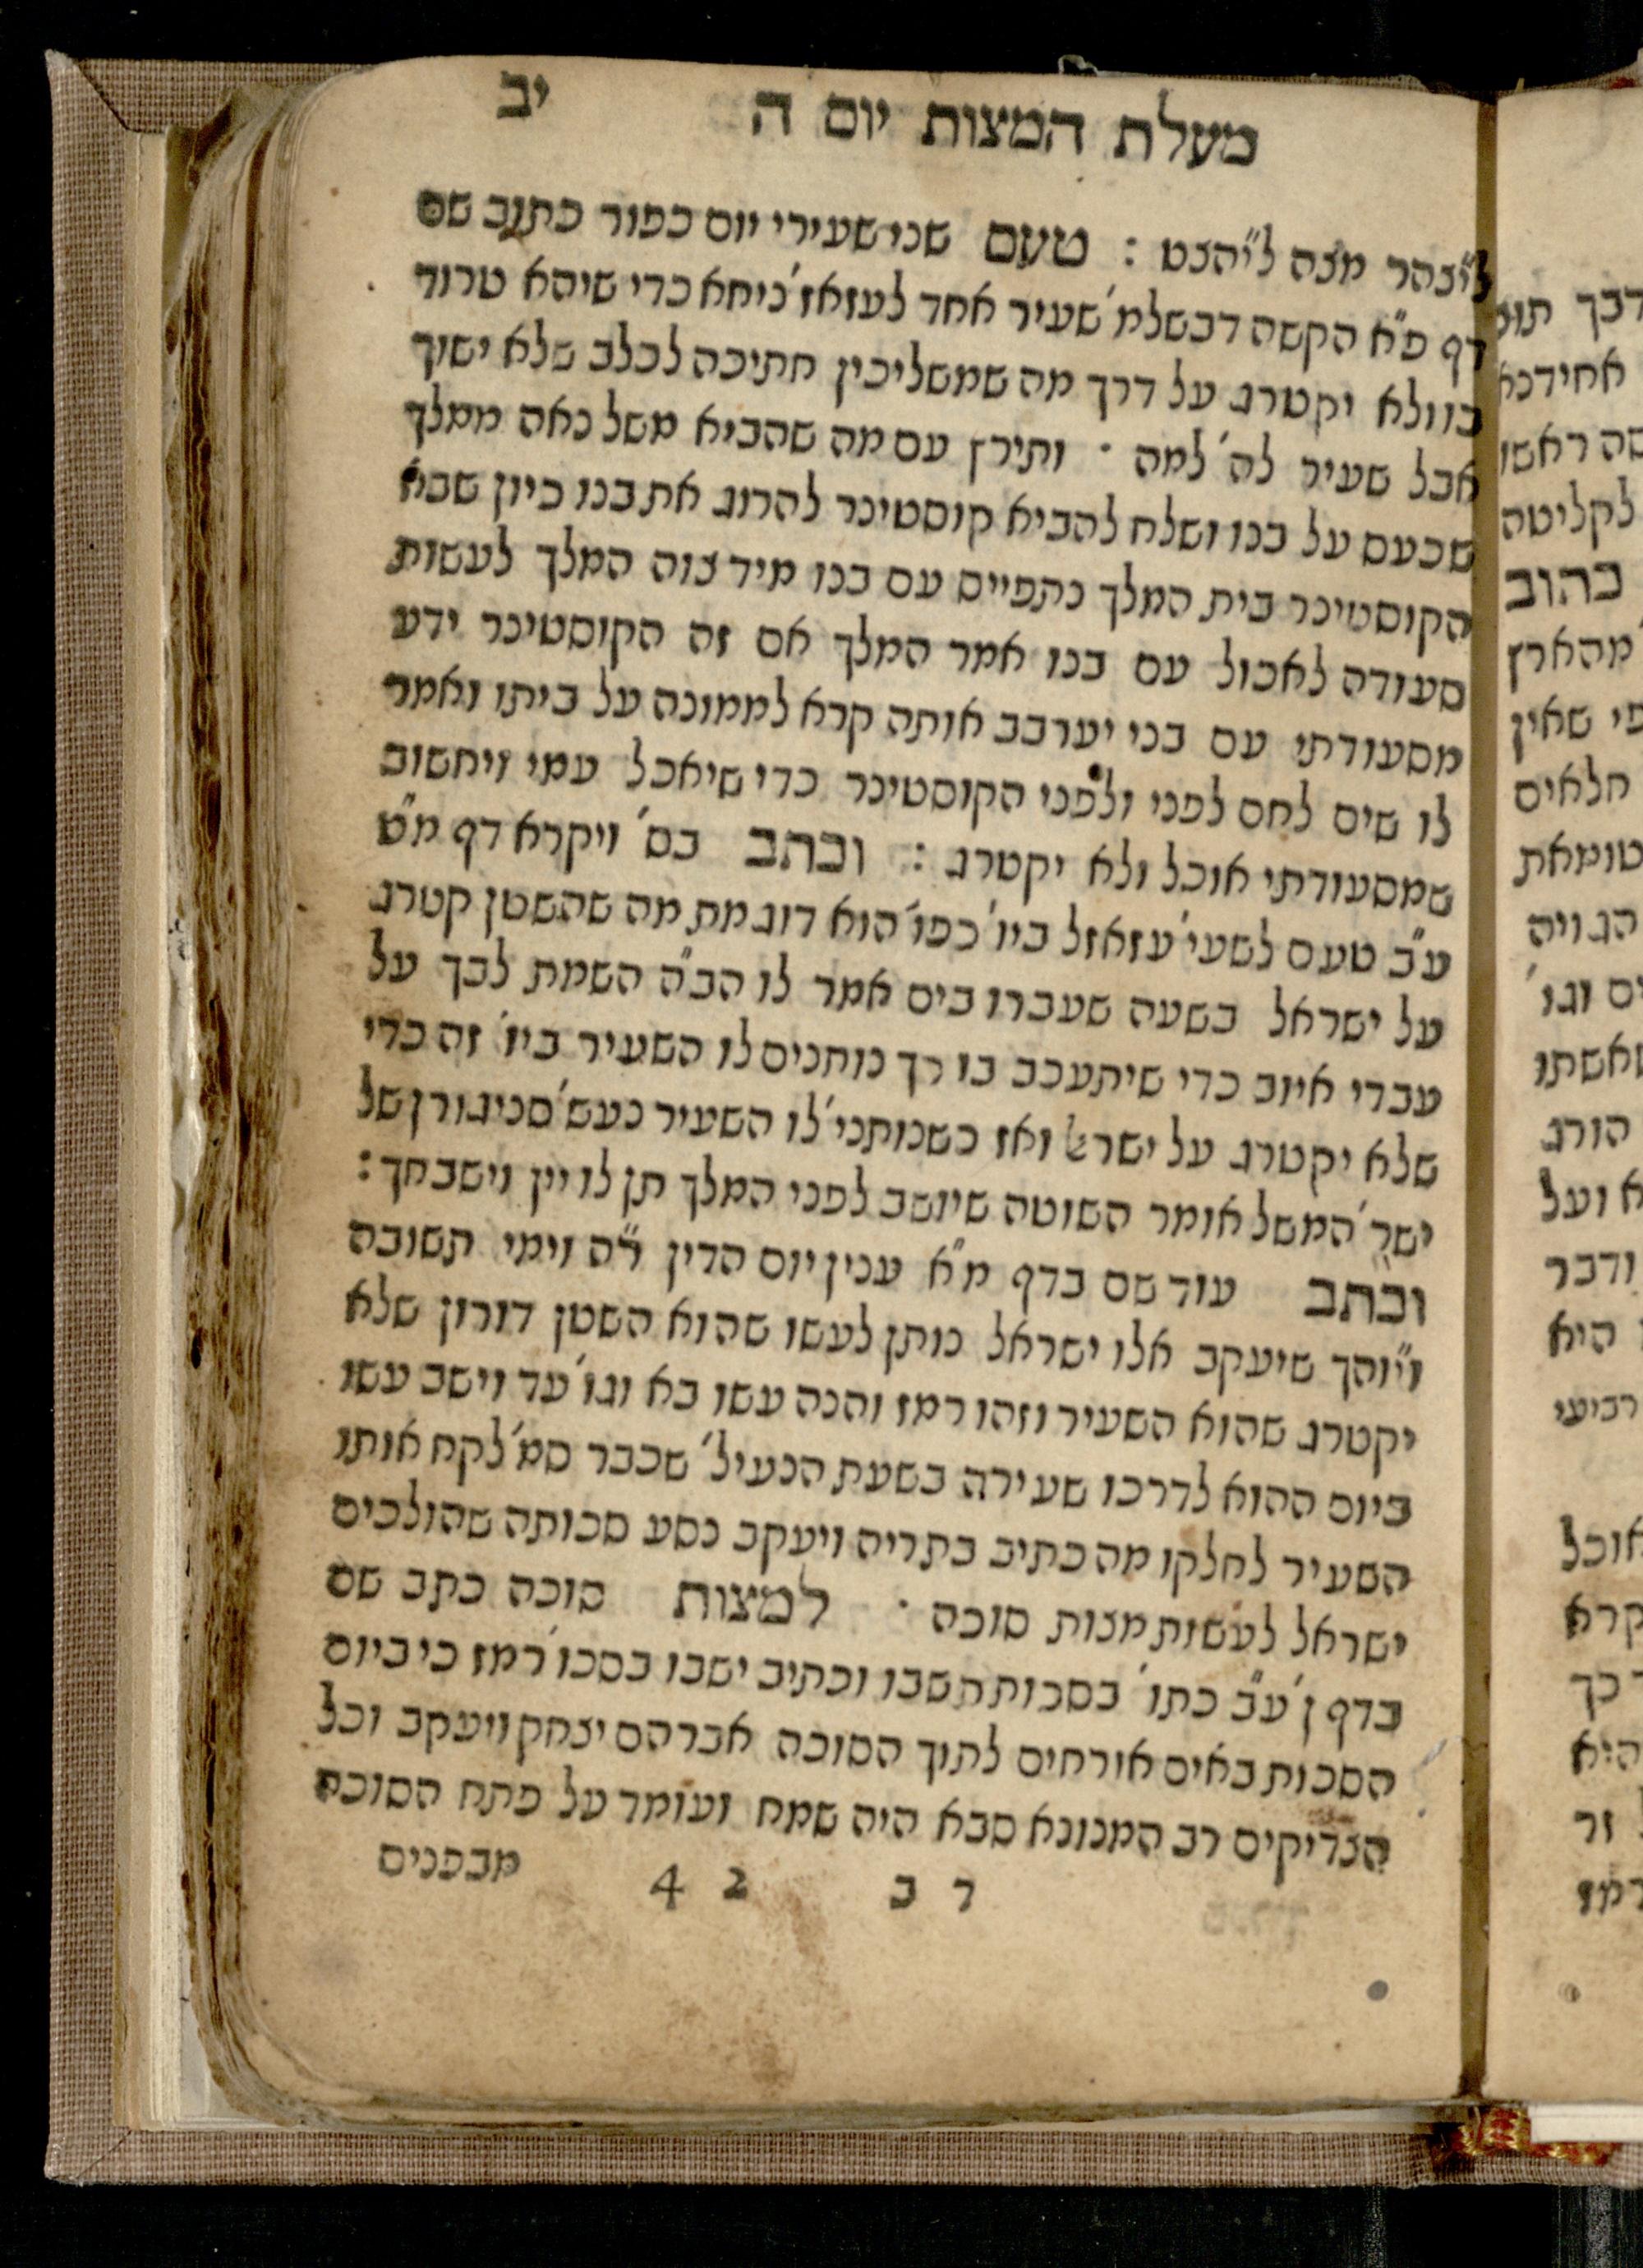 מעלת המצות יום ה יב
ליצהר מצה לי״הצט : טעם שני שעירי יום כפור כתוב שם
דף פ״א הקשה דבשלמ׳ שעיר אחד לעזאז׳ ניחא כדי שיהא טרוד
בו ולא יקטרג על דרך מה שמשליכין חתיכה לכלב שלא ישוך
אבל שעיר לה׳ למה · ותירץ עם מה שהביא משל נאה ממלך
שכעס על בנו ושלח להביא קוסטינר להרוג את בנו כיון שבא
הקוסטינר בית המלך נתפייס עם בנו מיד צוה המלך לעשות
סעודה לאכול עם בנו אמר המלך אם זה הקוסטינר ידע
מסעודתי עם בני יערבב אותה קרא לממונה על ביתו ואמר
לו שים לחם לפני ולפני הקוסטינר כדי שיאכל עמי ויחשוב
שמסעודתי אוכל ולא יקטרג : וכתב בס׳ ויקרא דף מ״ט
ע״ב טעם לשעי׳ עזאזל ביו׳ כפו׳ הוא דוגמת מה שהשטן קטרג
על ישראל בשעה שעברו בים אמר לו הב״ה השמת לבך על
עבדי איוב כדי שיתעכב בו רך נותנים לו השעיר ביו׳ זה כדי
שלא יקטרג על ישראל ואז כשנותני׳ לו השעיר נעש׳ סניגורן של
ישר׳ המשל אומר השוטה שיושב לפני המלך תן לו יין וישבחך :
וכתב עוד שם בדף מ״א ענין יום הדין ר״ה וימי תשובה
וי״והך שיעקב אלו ישראל נותן לעשו שהוא השטן דורון שלא
יקטרג שהוא השעיר וזהו רמז והנה עשו בא וגו׳ עד וישב עשו
ביום ההוא לדרכו שעירה בשעת הנעיל׳ שכבר סמ׳ לקח אותו
השעיר לחלקו מה כתיב בתריה ויעקב נסע סכותה שהולכים
ישראל לעשות מצות סוכה · למצות סוכה כתב שם
בדף ן׳ ע״ב כתו׳ בסכות תשבו וכתיב ישבו בסכו׳ רמז כי ביום
הסכות באים אורחים לתוך הסוכה אברהם יצחק ויעקב וכל
הצדיקים רב המנונא סבא היה שמח ועומד על פתח הסוכה
ר ב 2 4 מבפנים
דבך
אחידכא
שה ראשו
לקליטה
כהוב
מהארץ
פי שאין
חלאים
טומאת
הגויה
ים וגו׳
שאשתו
הורג
א ועל
ודבר
היא
רביעי
אוכל
קרא
כך
היא
זר
רמז